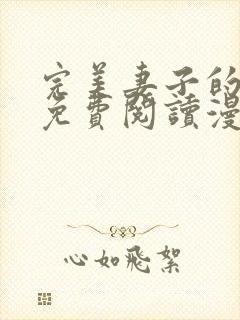 完美妻子的
免費閱讀漫
心如飛絮